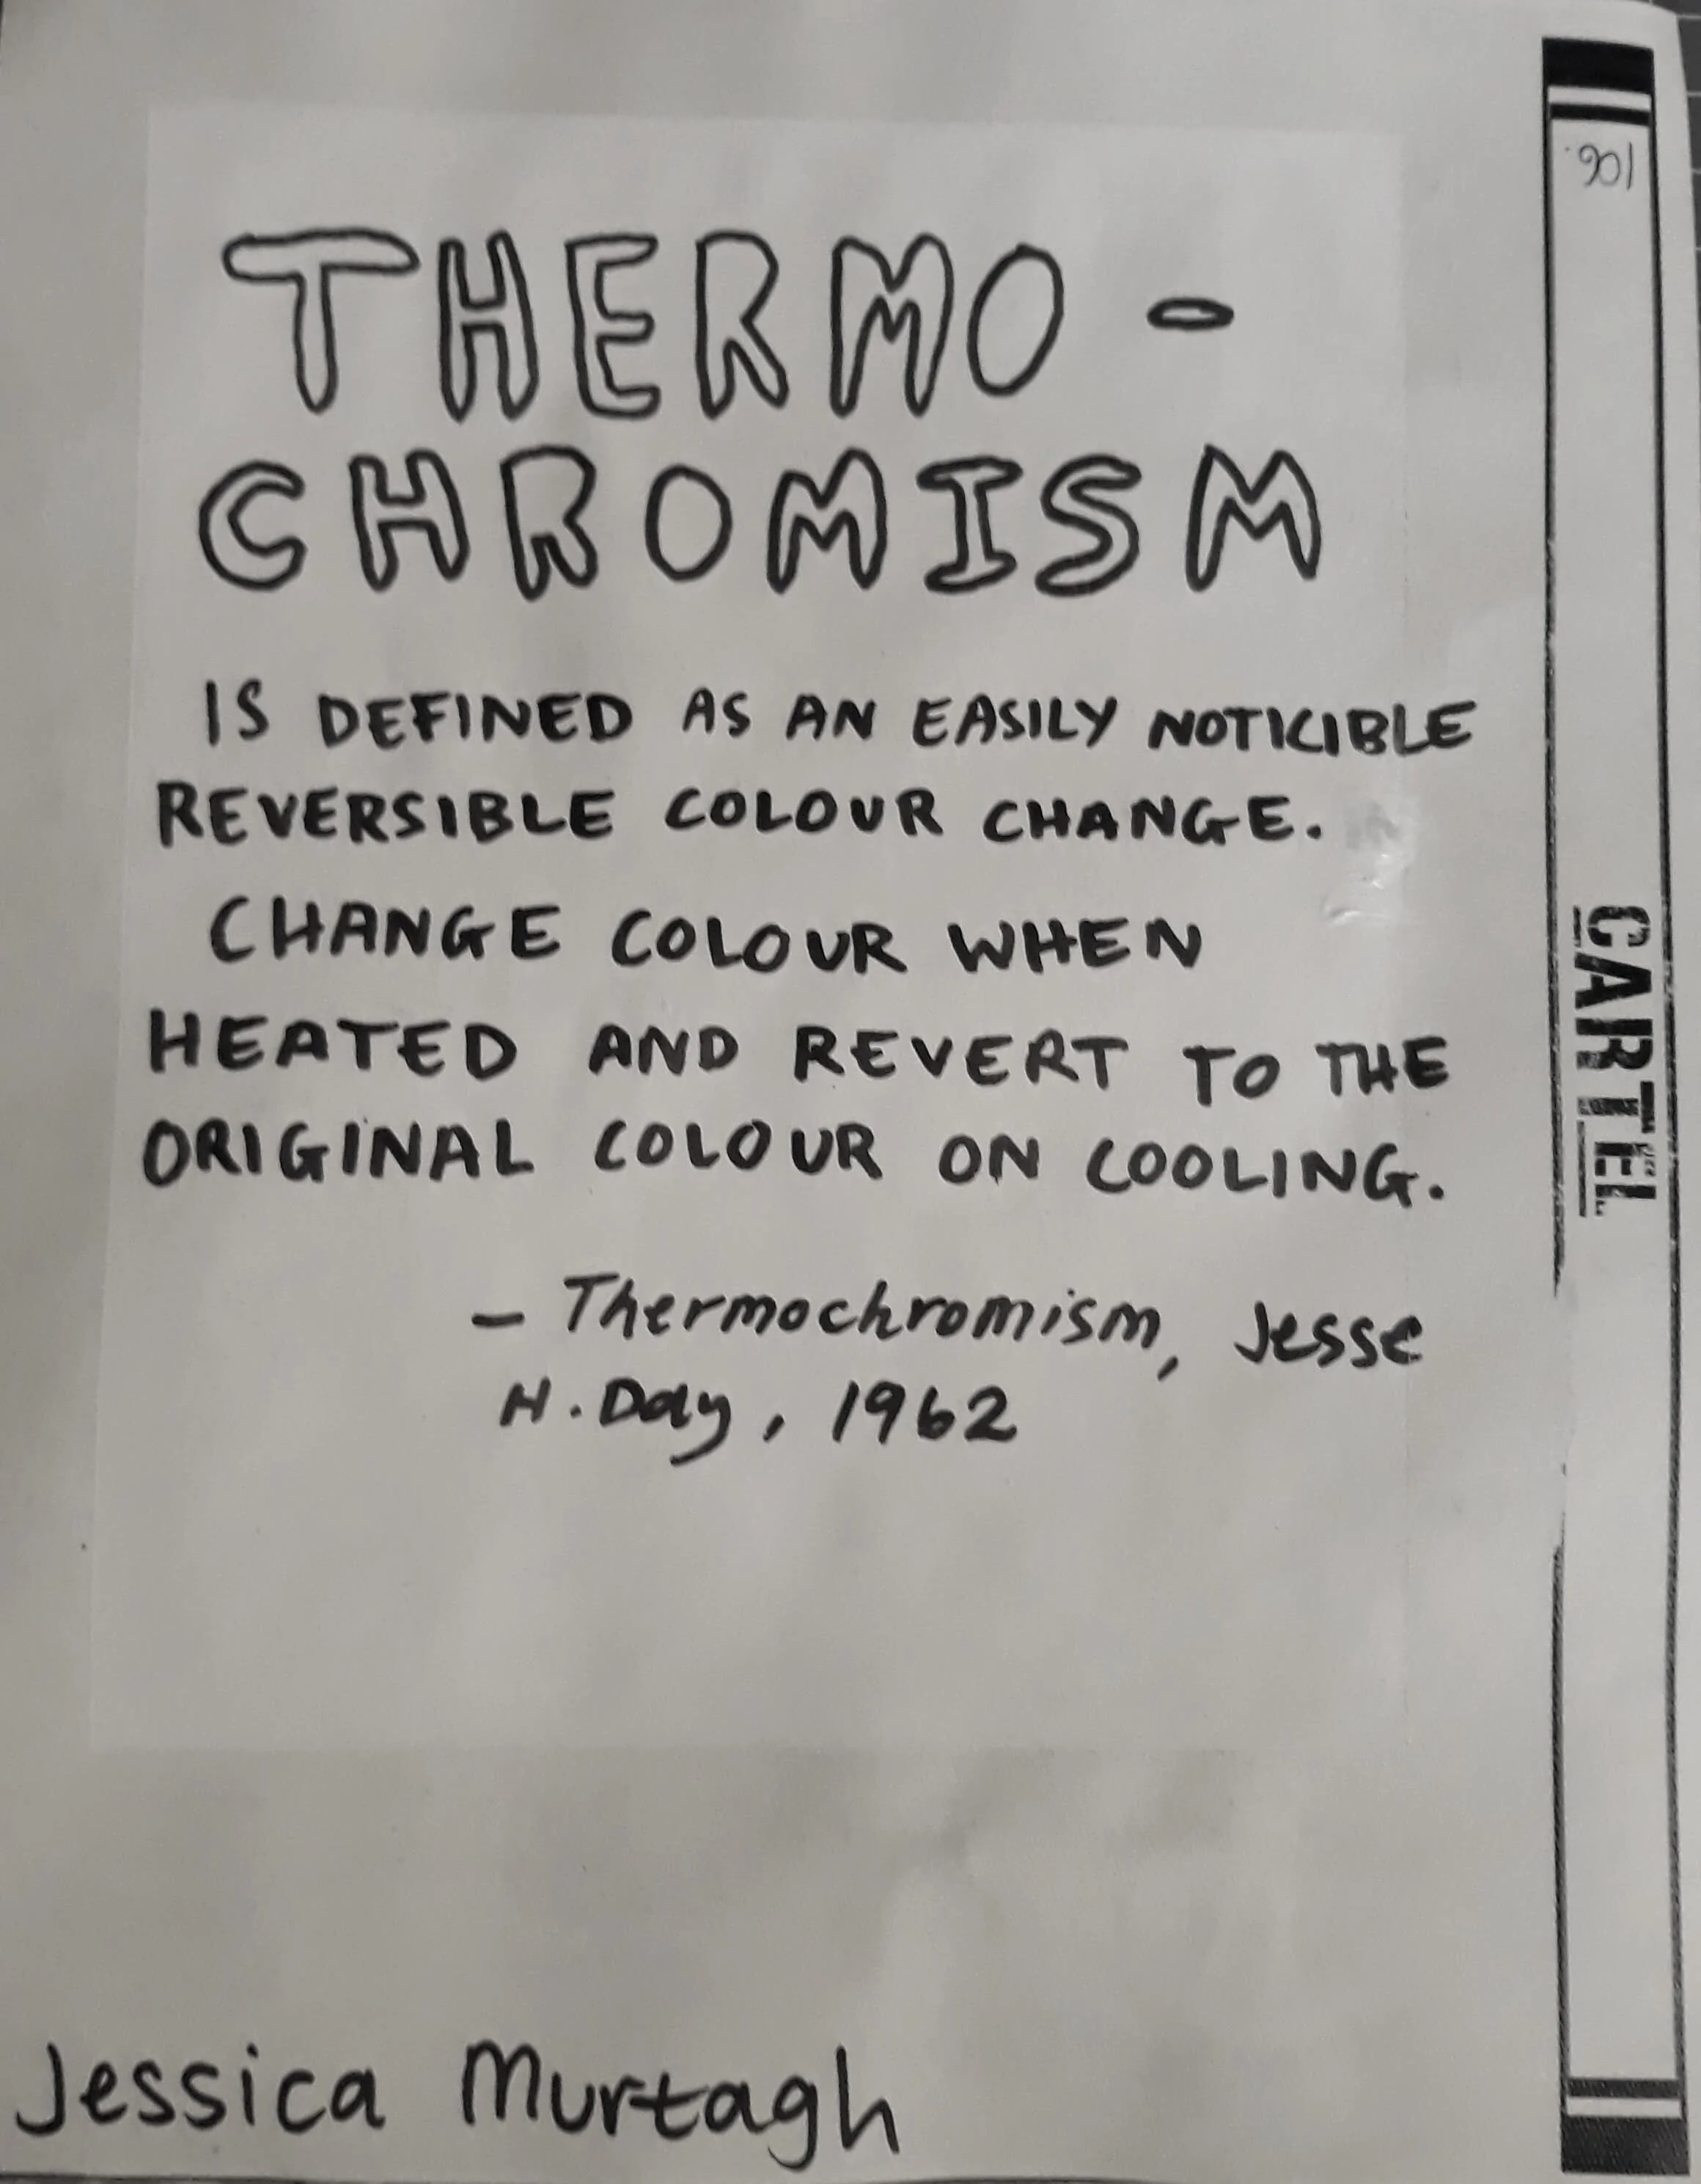 THERMO -
CHROMISM
IS DEFINED AS AN EASILY NOTICIBLE
REVERSIBLE COLOUR CHANGE.
CHANGE COLOUR WHEN
HEATED AND REVERT TO THE
ORIGINAL COLOUR ON COOLING.
- Thermochromism, Jesse
H. Day, 1962
Jessica Murtagh
106.
CARTEL